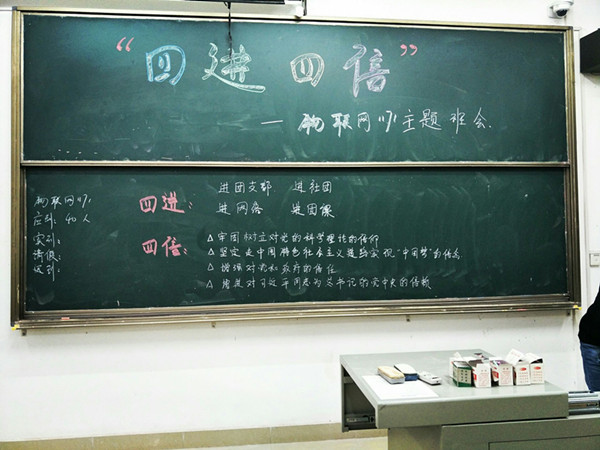 “四进四信”
—物联网171主题班会.
物联网171
应到:40人
实到:
请假:
迟到:
四进:
进团支部 进社团
进网络 进团课
四信:
△牢固树立对党的科学理论的信仰
△坚定走中国特色社会主义道路实现“中国梦”的信念
△增强对党和政府的信任
△增进对习近平同志为总书记的党中央的信赖